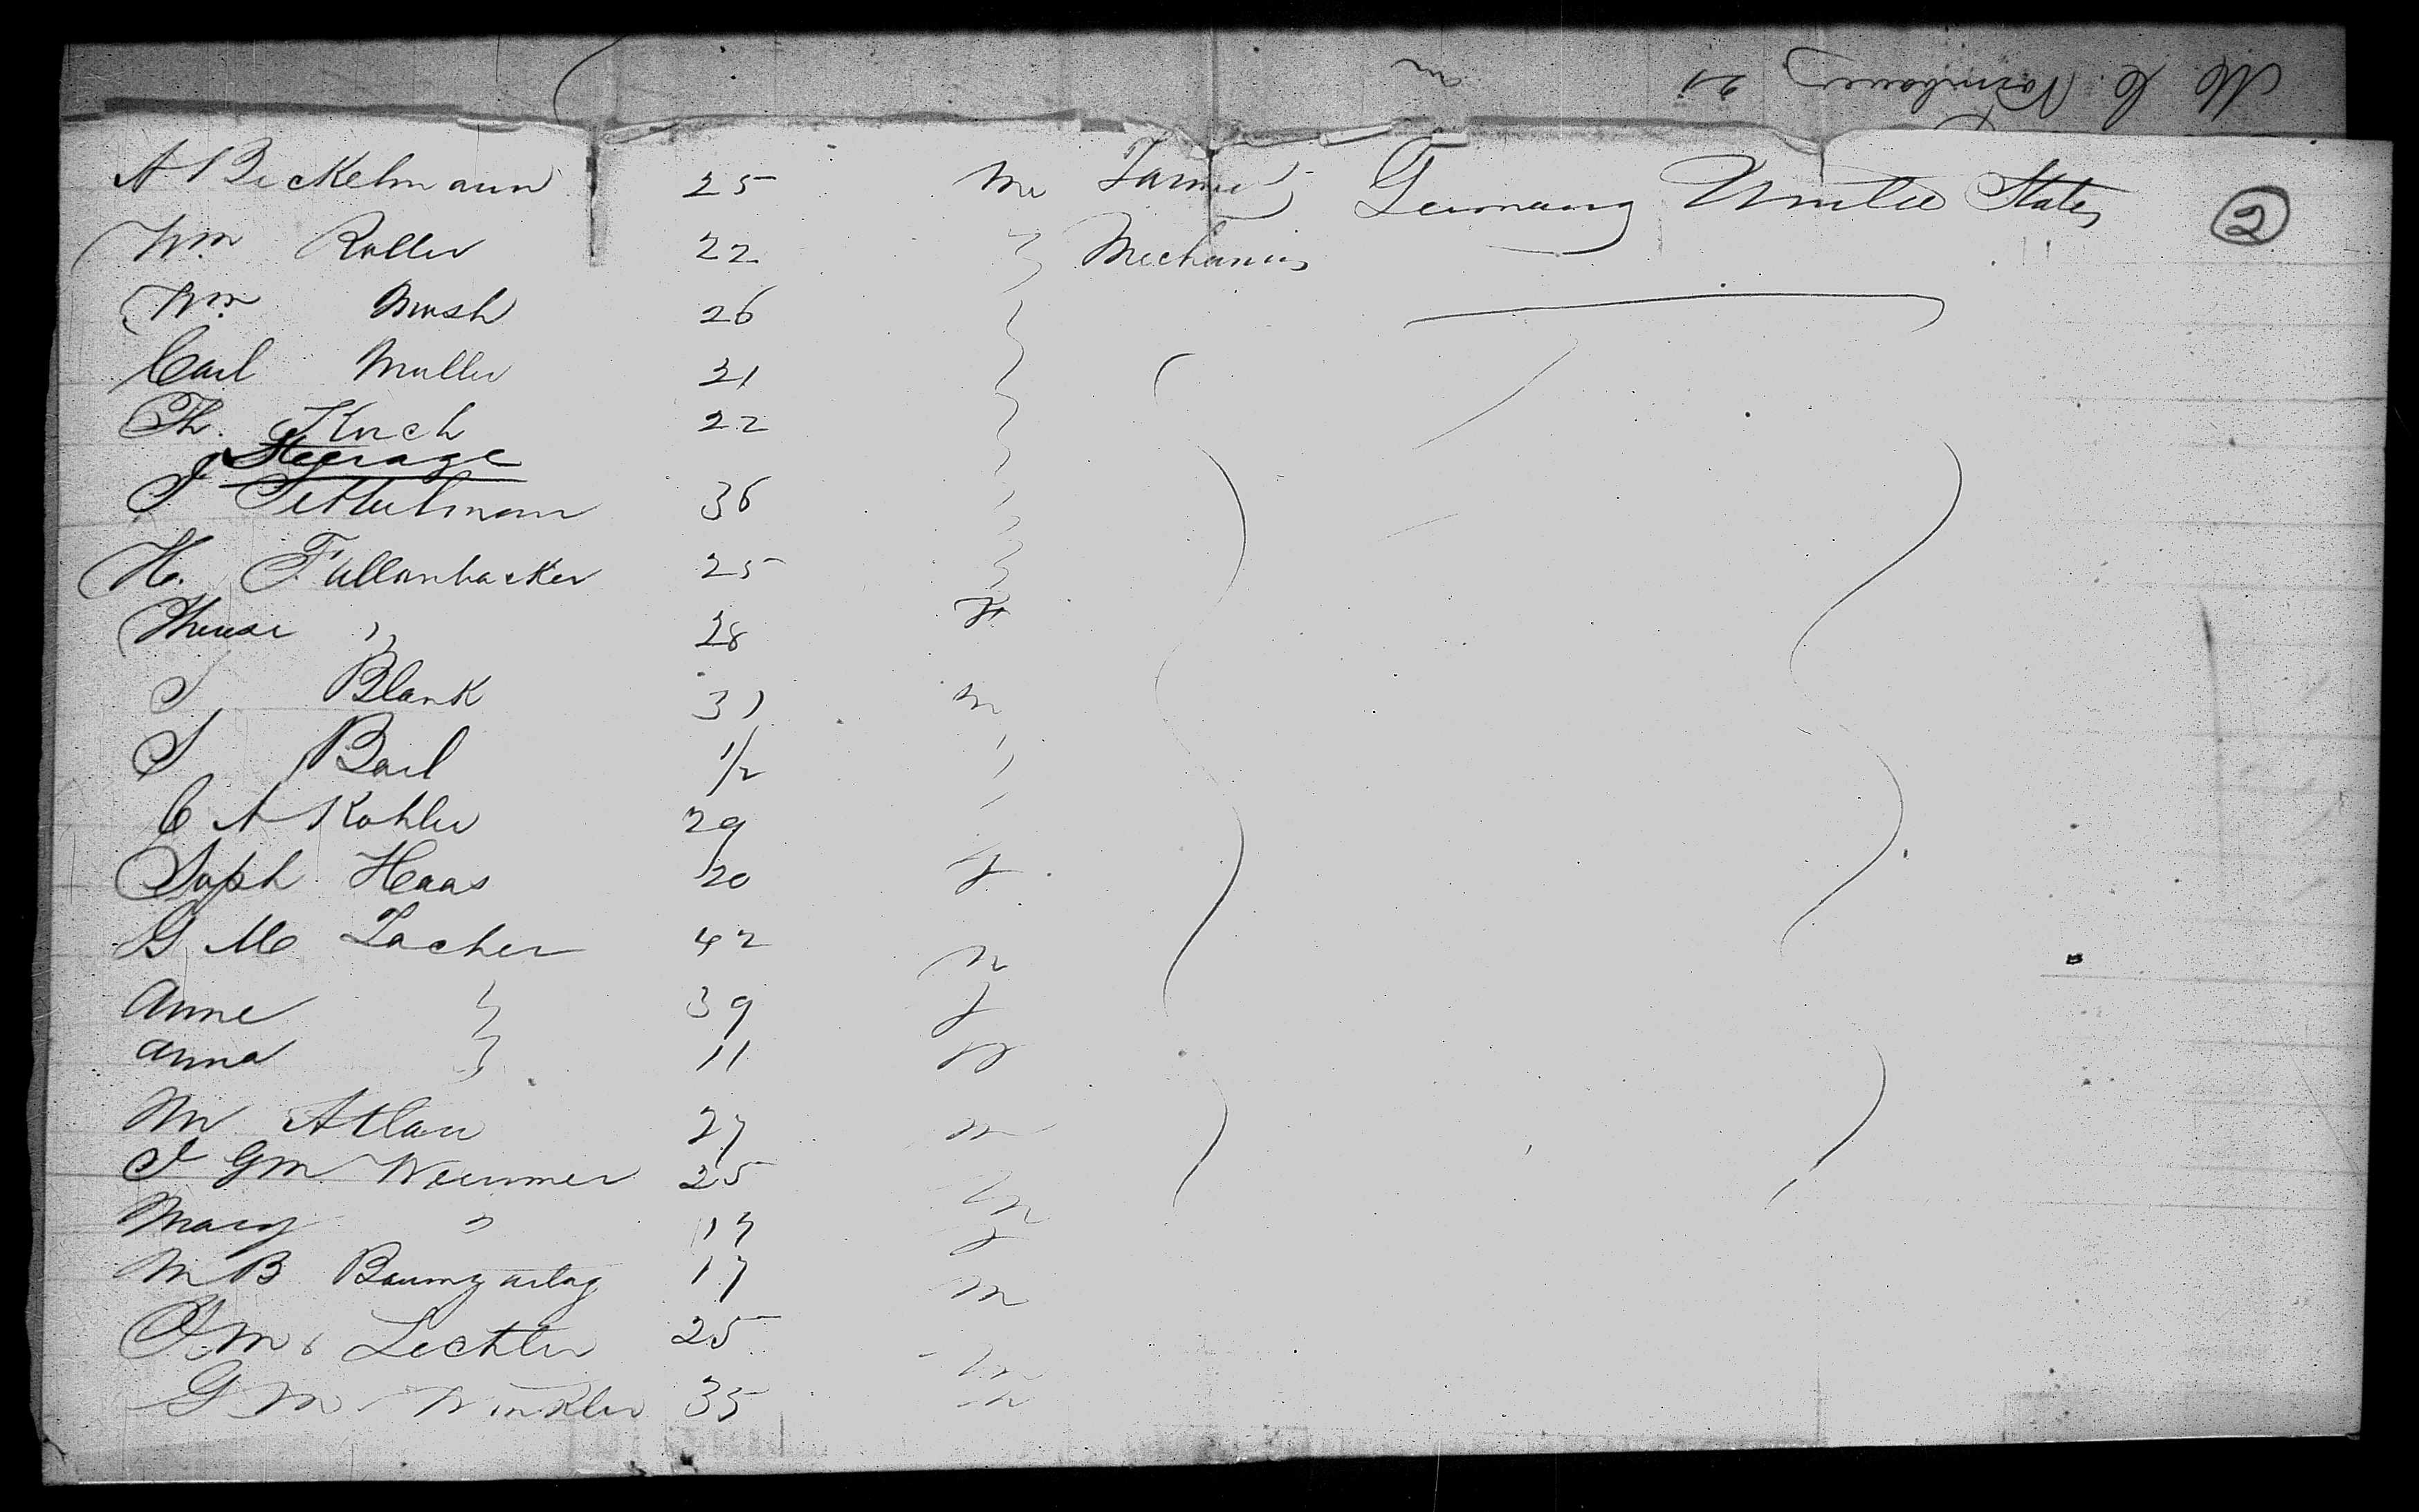 M C Nornhauer 21 m
A Beckelmann 25 m Farmer Germany United States
2
Wm Roller 22 " Mechanics
Wm Mush 26
Carl Muller 21
Th. Knch 22
Steerage
J Settelmann 36
H. Fallenbacker 25
Therese " 28 f
J Blank 31 m
J Bail 1/2 "
C A Kohler 29 "
Soph Haas 20 f
G M Lacher 42 m
Anne " 39 f
Anna " 11
M Atlau 27 m
J GM Weimmer 25 m
Mary " 17 f
M B Baumgarteg 17 m
J M Lechler 25 m
G M Winkler 35 m